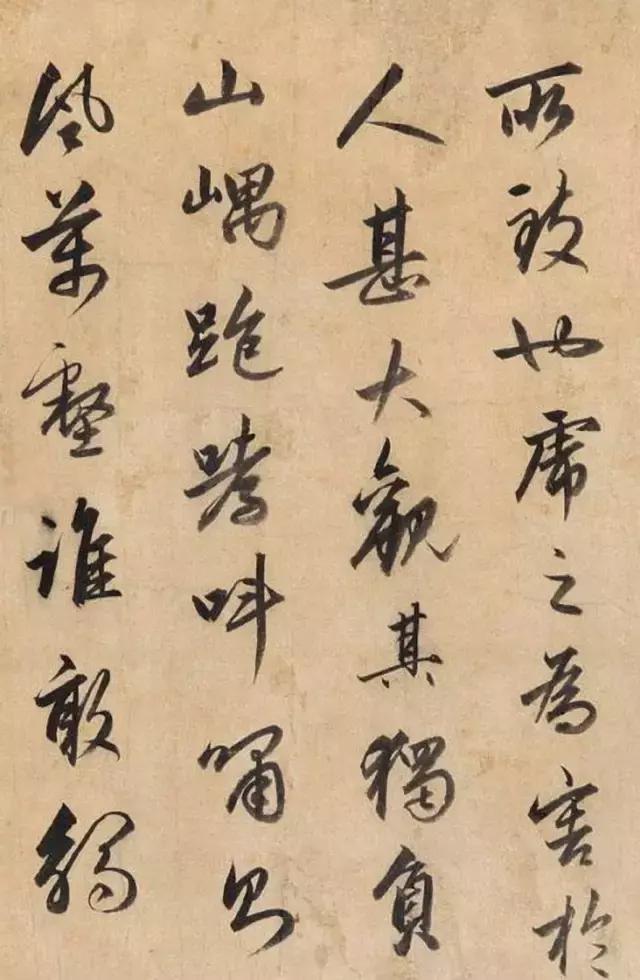 所致也虎之為害於
人甚大觀其獨負
山嵎跑嗥叫嘯則
風萬壑誰敢觸